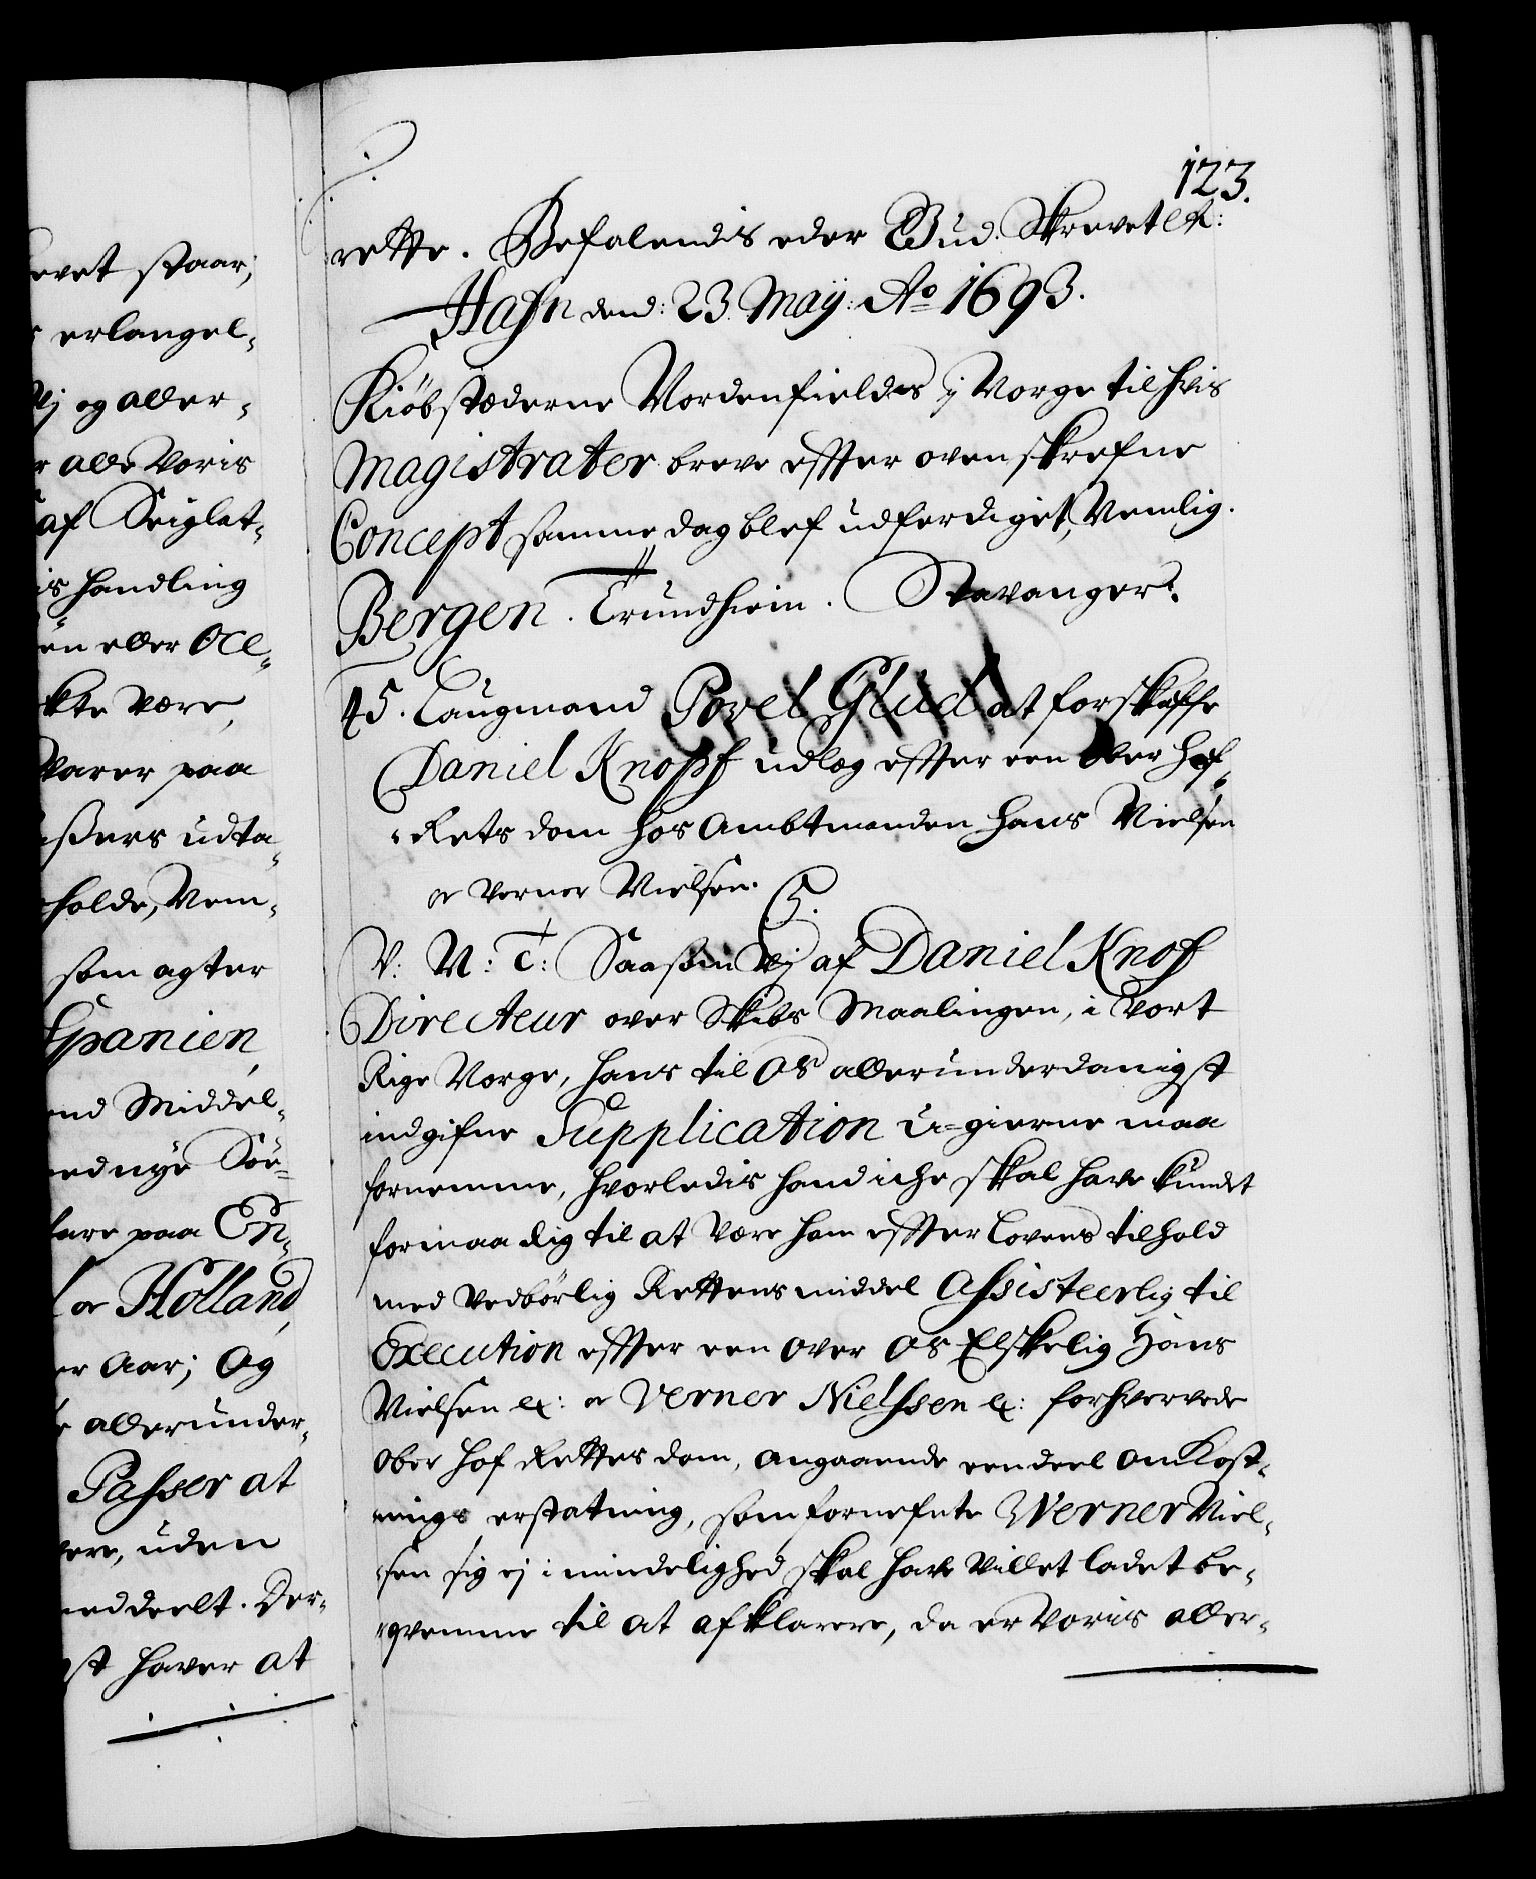 123.
rette. Befalendis eder Gud. Skrevet etc:
Hafn dend: 23. Maÿ: Ao 1693.
Kiöbstæderne Nordenfields i Norge til hvis
Magistrater breve effter ovenskrefne
Concept samme dag blef udferdiget, Nemlig.
Bergen. Trundhiem. Stavanger.
45. Laugmand Povel Glud at forskaffe
Daniel Knopf udlæg effter een Over Hof-
Rets dom hos Ambtmanden Hans Nielsen
oc Verner Nielsen.
C 5.
V: N: T: Saasom Vj af Daniel Knof
Directeur over Skibs Maalingen, i Vort
Rige Norge, hans til Os allerunderdanigst
indgifne Supplication u-gierne maa
fornemme, hvorledis hand iche skal have kundet
formaa dig til at være ham effter Lovens tilhold
med vedbörlig Rettens middel Assisteerlig til
Execution effter een over Os Elskelig Hans
Nielsen etc: oc Verner Nielssen etc: forhvervede
Ober Hof Rettes dom, angaaende eendeel omKost-
nings erstatning, som fornefnte Werner Niel-
sen sig ej i mindelighed skal have villet ladet be-
qvemme til at afklarere, da er Voris aller-
evet staar,
erlangel-
Vj og aller-
alle Voris
af Seiglat-
handling
en eller Oel-
kte være,
Varer paa
assers udta-
holde, Nem-
som agter
Spanien,
end Middel-
ednye Söe-
fare paa En-
oc Holland,
er Aar; Og
allerunder-
Passer at
være, uden
meddeelt. Der-
st haver at